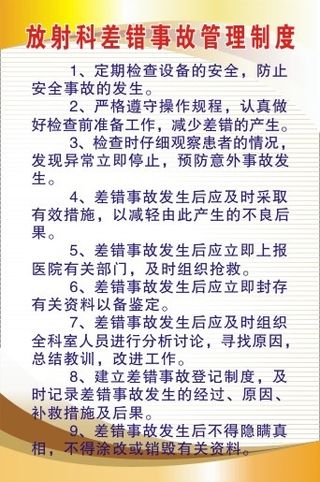 放射科差错事故管理制度
1、定期检查设备的安全，防止
安全事故的发生。
2、严格遵守操作规程，认真做
好检查前准备工作，减少差错的产生。
3、检查时仔细观察患者的情况，
发现异常立即停止，预防意外事故发
生。
4、差错事故发生后应及时采取
有效措施，以减轻由此产生的不良后
果。
5、差错事故发生后应立即上报
医院有关部门，及时组织抢救。
6、差错事故发生后应立即封存
有关资料以备鉴定。
7、差错事故发生后应及时组织
全科室人员进行分析讨论，寻找原因，
总结教训，改进工作。
8、建立差错事故登记制度，及
时记录差错事故发生的经过、原因、
补救措施及后果。
9、差错事故发生后不得隐瞒真
相，不得涂改或销毁有关资料。